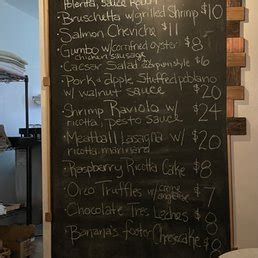 Polenta, sauce
Bruschetta w/ grilled Shrimp $10
Salmon Cheviche $11
Gumbo w/ cornfried oyster $8
chicken sausage
Caesar Salad style $6
Pork & apple Stuffed poblano
w/ walnut sauce $20
Shrimp Raviolo w/
ricotta, pesto sauce $24
Meatball Lasagna w/
ricotta, marinara $20
Raspberry Ricotta Cake $8
Oreo Truffles w/ creme
anglaise $7
Chocolate Tres Leches $8
Bananas foster Cheesecake $8